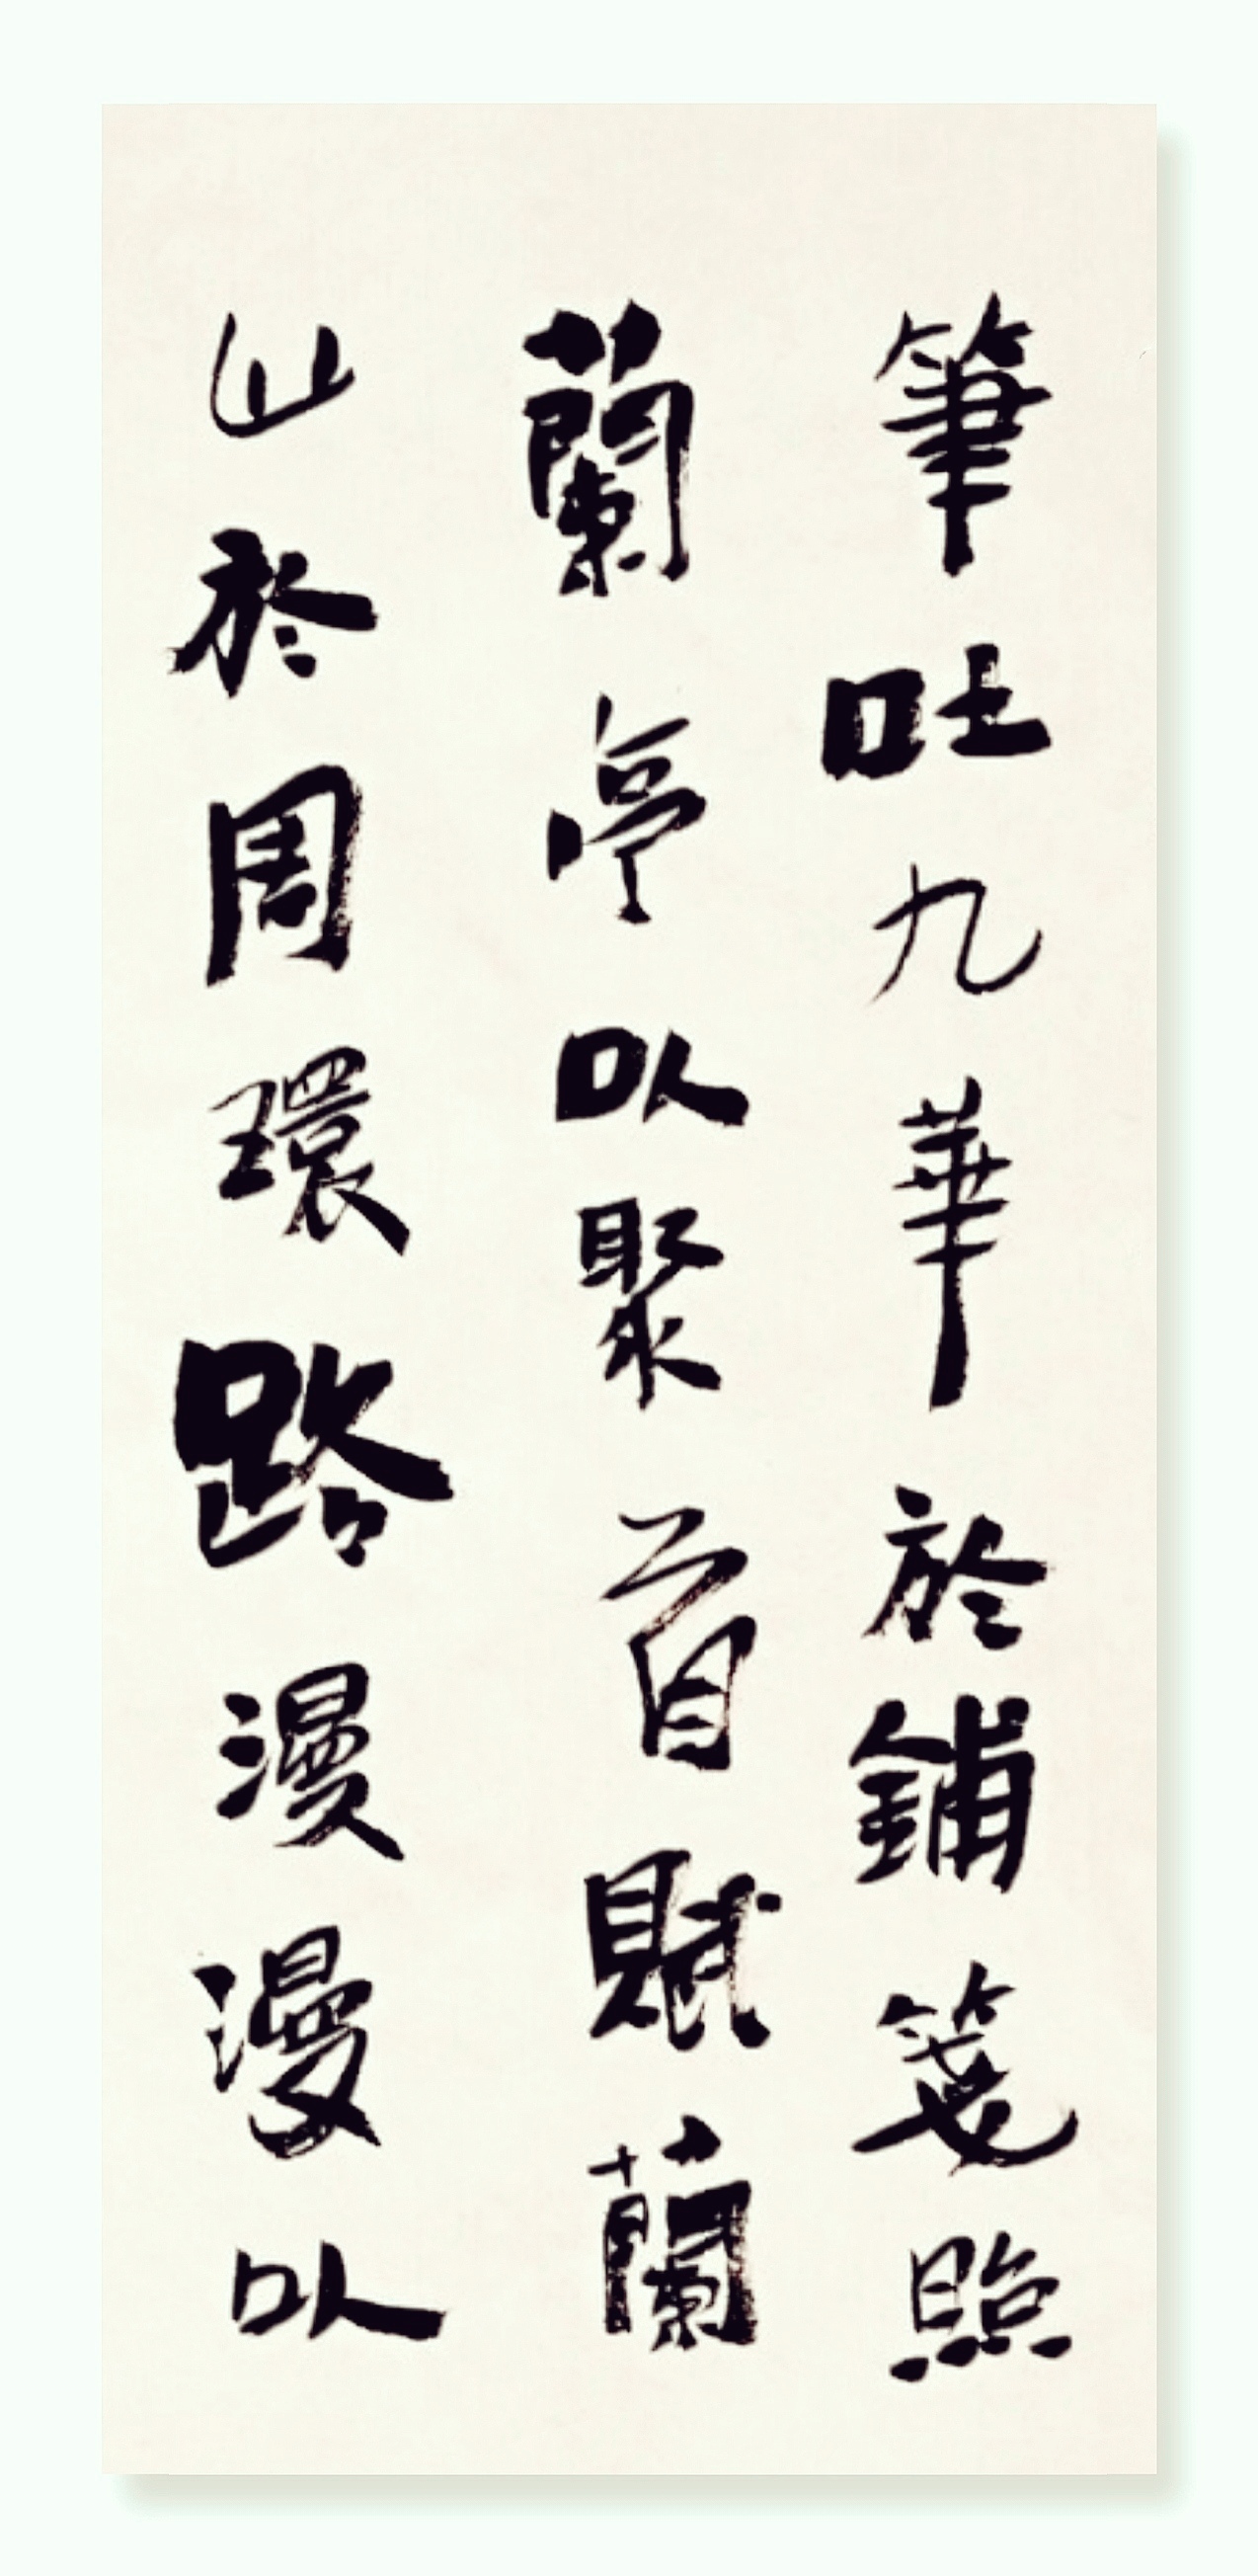 筆吐九華於鋪箋照
蘭亭以聚首賦蘭
山於周環路漫漫以